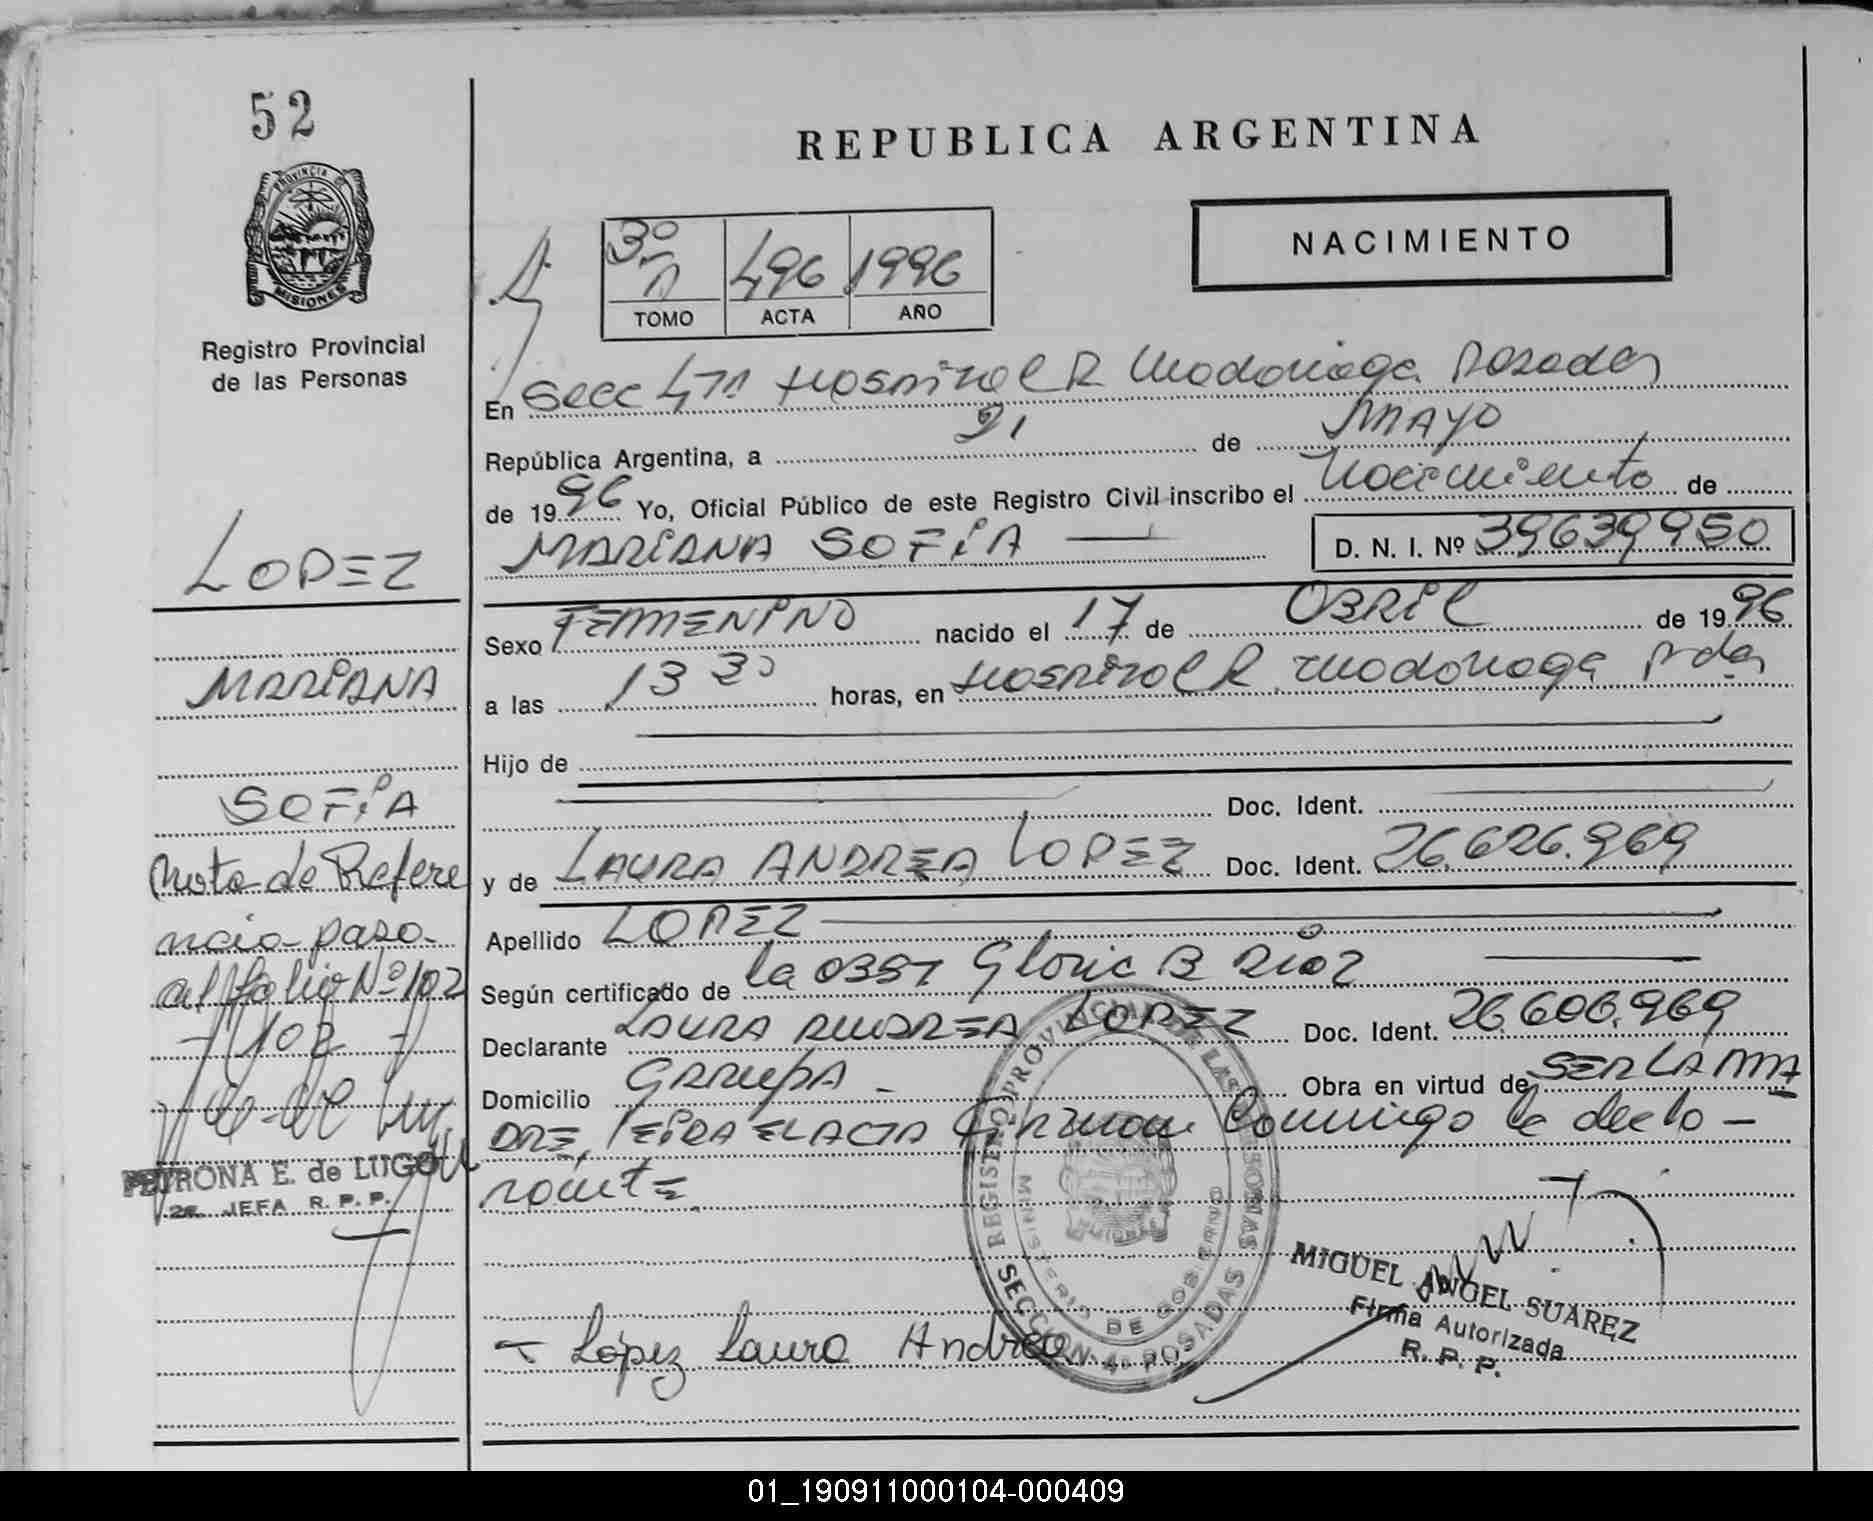 52
REPUBLICA ARGENTINA
PROVINCIA
MISIONES
Registro Provincial
de las Personas
3º
496 1996
TOMO ACTA AÑO
NACIMIENTO
En Secc 4ta Hospital R Madariaga Posadas
República Argentina, a 21 de MAYO
de 1996 Yo, Oficial Público de este Registro Civil inscribo el Nacimiento de
MARIANA SOFIA — D. N. I. Nº 39639950
LOPEZ
MARIANA
SOFIA
Sexo FEMENINO nacido el 17 de ABRIL de 1996
a las 13 30 horas, en Hospital R. Madariaga Pdas
Hijo de
Doc. Ident.
y de LAURA ANDREA LOPEZ Doc. Ident. 26.626.969
Apellido LOPEZ
Según certificado de la OBST Gloria B Rioz
Declarante LAURA ANDREA LOPEZ Doc. Ident. 26.606.969
Domicilio GARUPA - Obra en virtud de SER LA MA
DRE, LEIDA EL ACTA Firman Conmigo la decla-
rante
Nota de Refere
ncia paso
al folio Nº 102
- 102 -
PETRONA E. de LUGO
2a. JEFA R. P. P.
REGISTRO PROVINCIAL DE LAS PERSONAS
MINISTERIO DE GOBIERNO
SECCION 4ª POSADAS
MIGUEL ANGEL SUAREZ
Firma Autorizada
R. P. P.
- López Laura Andrea
01_190911000104-000409